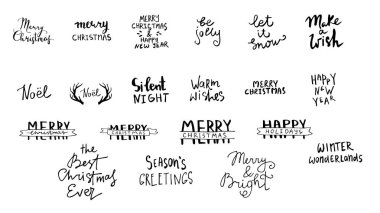 Merry Christmas
merry CHRISTMAS
MERRY CHRISTMAS & HAPPY NEW YEAR
be jolly
let it snow
Make a Wish
Noël
Noël
Silent NIGHT
Warm wishes
MERRY CHRISTMAS
HAPPY NEW YEAR
MERRY CHRISTMAS
MERRY CHRISTMAS
MERRY CHRISTMAS
HAPPY HOLIDAYS
the Best Christmas Ever
SEASON'S GREETINGS
Merry & Bright
WINTER wonderlands